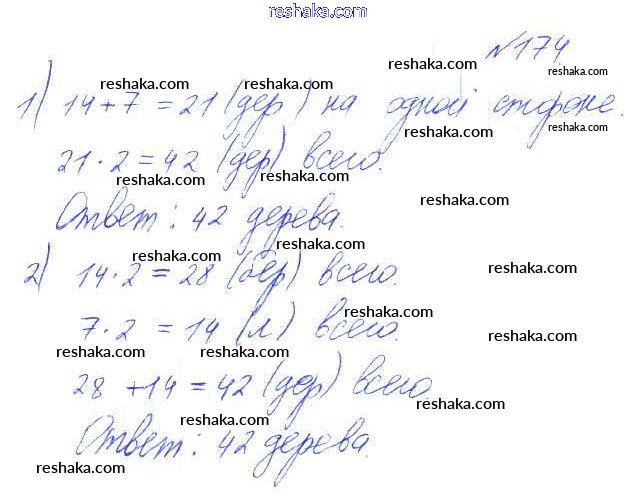 reshaka.com
№174
reshaka.com
reshaka.com reshaka.com reshaka.com
1) 14+7=21 (дер) на одной стороне.
reshaka.com reshaka.com
21·2=42 (дер) всего.
reshaka.com reshaka.com
reshaka.com
Ответ: 42 дерева.
reshaka.com
2) 14·2=28 (бер) всего.
reshaka.com
reshaka.com
7·2=14 (л) всего.
reshaka.com
reshaka.com reshaka.com
28+14=42 (дер) всего.
reshaka.com
reshaka.com
Ответ: 42 дерева.
reshaka.com